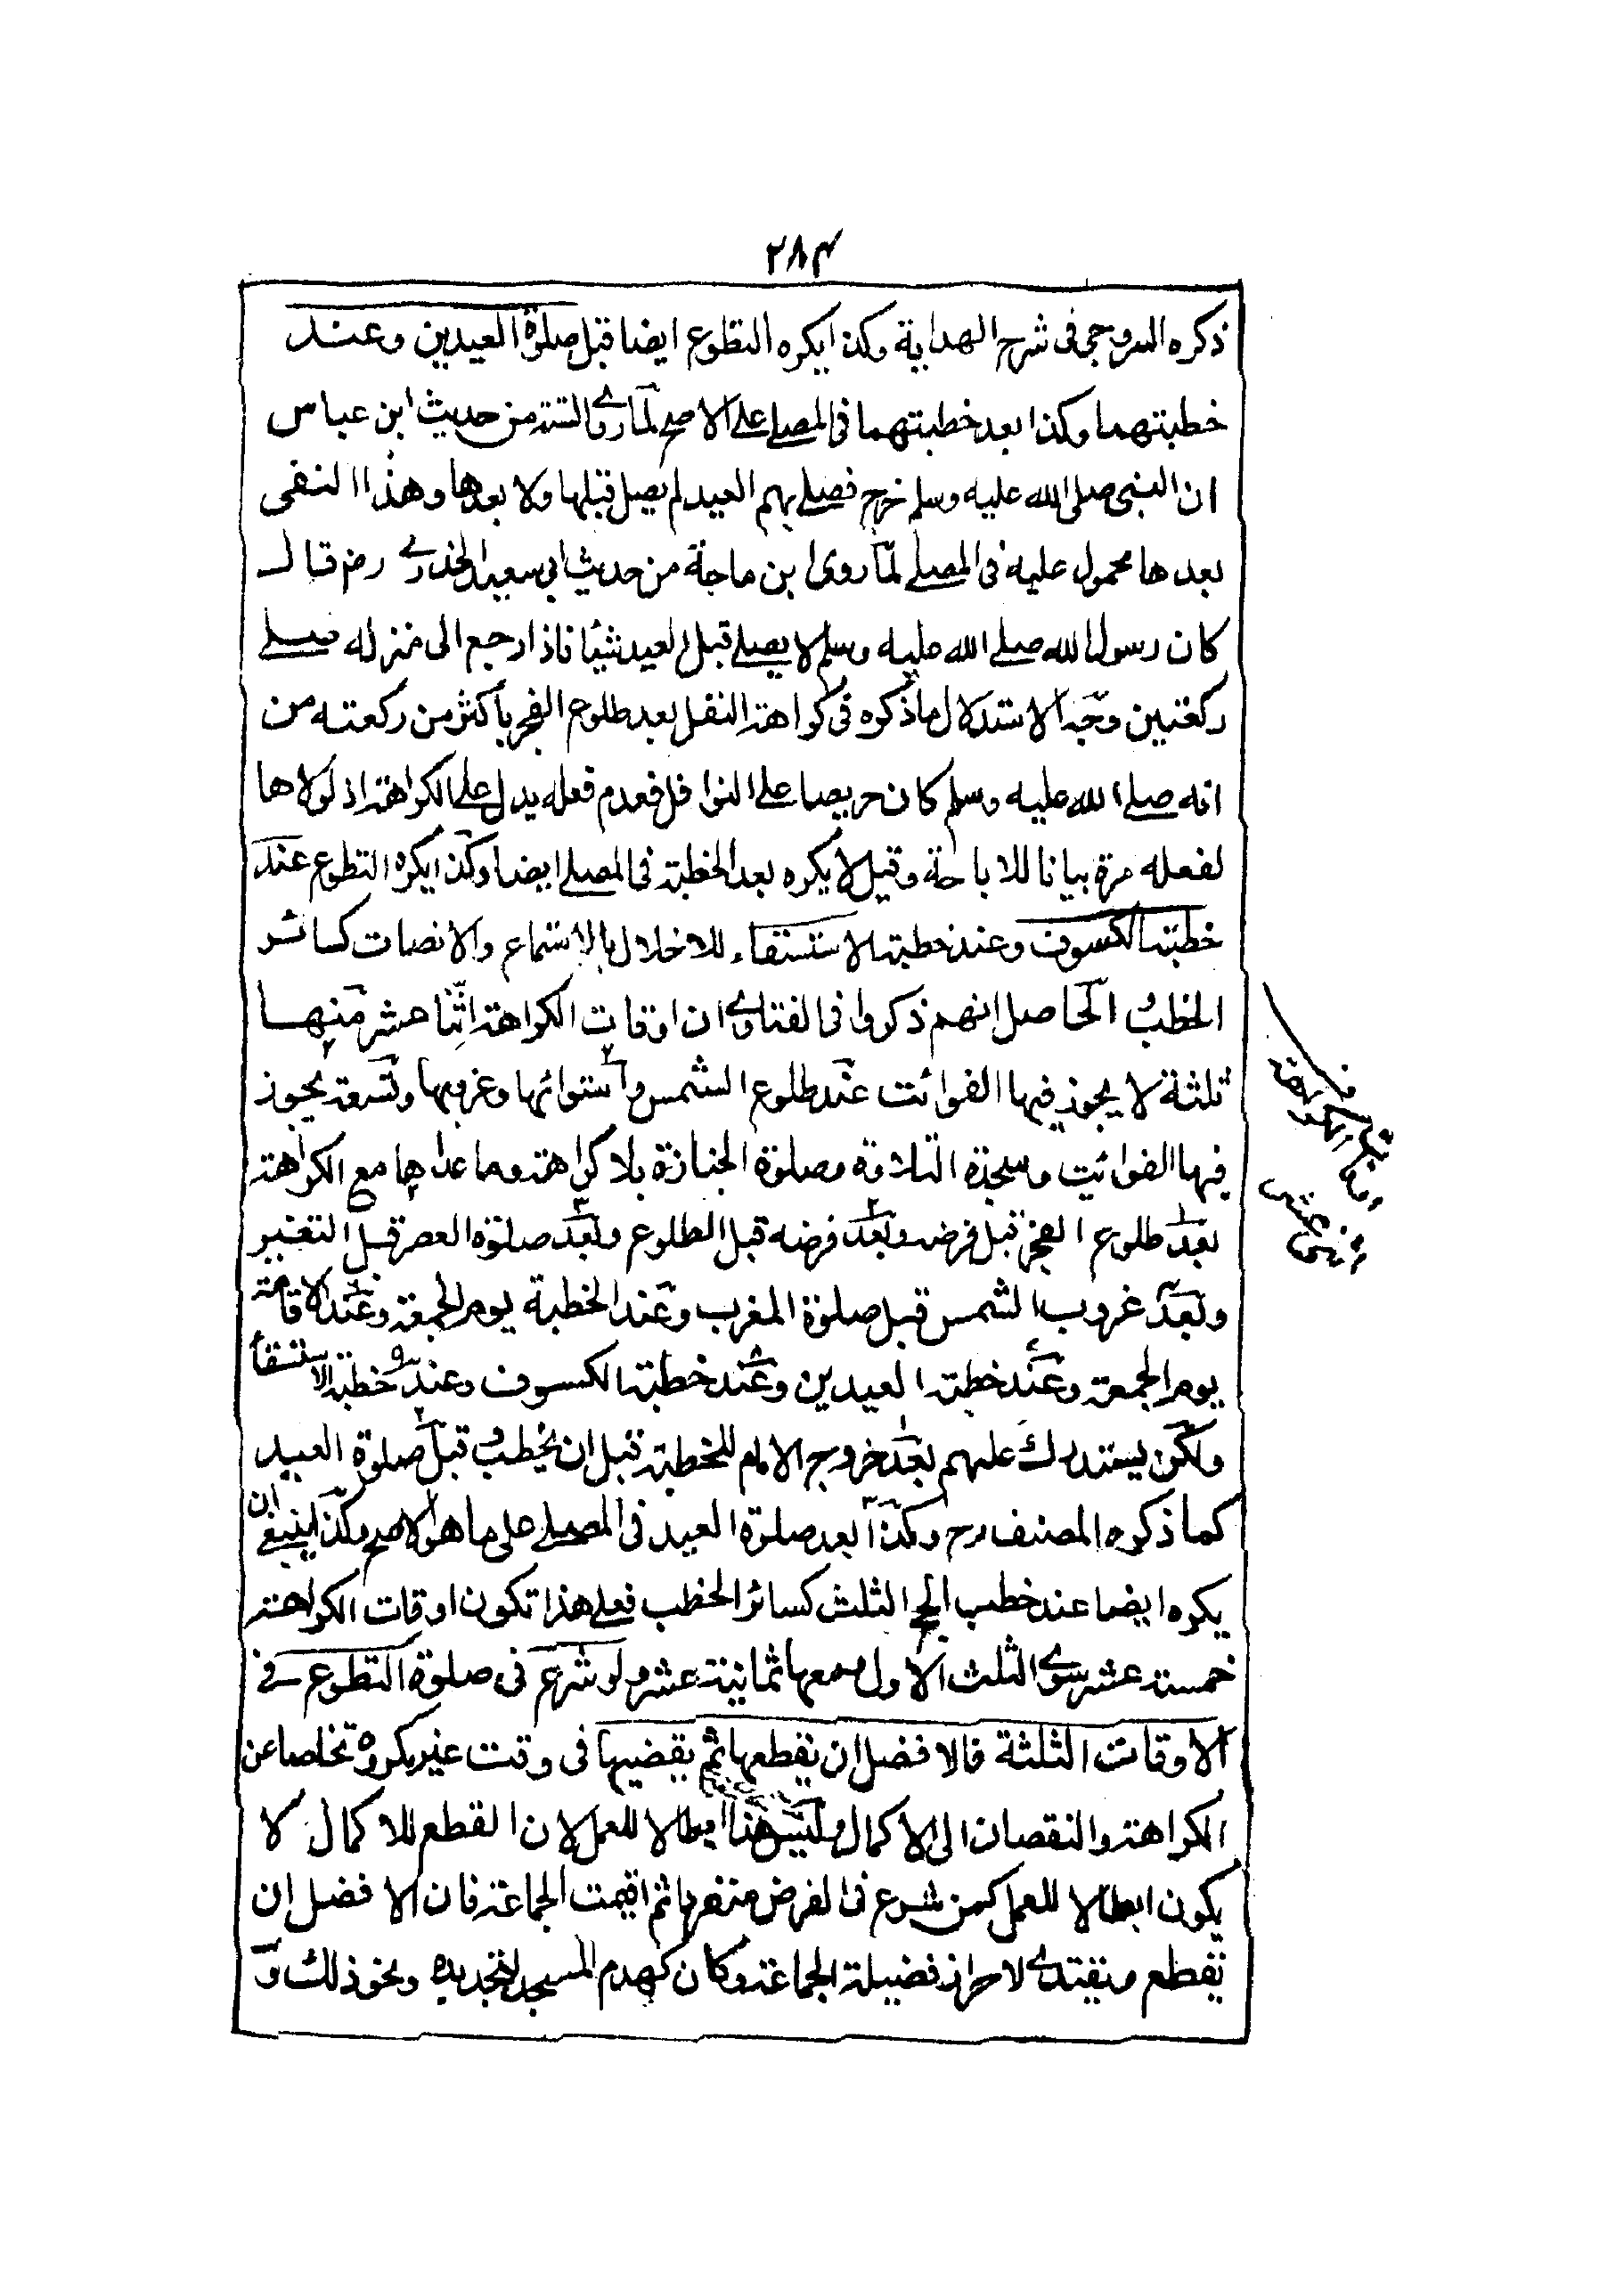 ۲۸۴
ذكره السروجى فى شرح الهداية وكذا يكره التطوع ايضا قبل صلوة العيدين وعند
خطبتهما وكذا بعد خطبتهما فى المصلے علے الاصح لما روے الستة من حديث ابن عباس
ان النبى صلى الله عليه وسلم خرج فصلے بهم العيد لم يصل قبلها ولا بعدها وهذا النفى
بعدها محمول عليه فى المصلے لما روى ابن ماجة من حديث ابى سعيد الخدرے رض قال
كان رسول الله صلے الله عليه وسلم لا يصلے قبل العيد شيئا فاذا رجع الى منزله صلے
ركعتين وجه الاستدلال ما ذكروه فى كراهة النفل بعد طلوع الفجر باكثر من ركعته من
انه صلے الله عليه وسلم كان حريصا علے النوافل فعدم فعله يدل علے الكراهة اذ لولاها
لفعله مرة بيانا للاباحة وقيل لا يكره بعد الخطبة فى المصلے ايضا وكذا يكره التطوع عند
خطبة الكسوف وعند خطبة الاستسقاء للاخلال بالاستماع والانصات كسائر
الخطب الحاصل انهم ذكروا فى الفتاوے ان اوقات الكراهة اثنا عشر منها
ثلثة لا يجوز فيها الفوائت عند طلوع الشمس واستوائها وغروبها وتسعة يجوز
فيها الفوائت وسجدة التلاوة وصلوة الجنازة بلا كراهة وما عداها مع الكراهة
بعد طلوع الفجر قبل فرضه وبعد فرضه قبل الطلوع وبعد صلوة العصر قبل التغير
وبعد غروب الشمس قبل صلوة المغرب وعند الخطبة يوم الجمعة وعند الاقامة
يوم الجمعة وعند خطبة العيدين وعند خطبة الكسوف وعند خطبة الاستسقأ
ولكن يستدرك عليهم بعد خروج الامام للخطبة قبل ان يخطب وقبل صلوة العيد
كما ذكره المصنف رح وكذا بعد صلوة العيد فى المصلے على ما هو الاصح وكذا ينبغے ان
يكره ايضا عند خطب الحج الثلث كسائر الخطب فعلے هذا تكون اوقات الكراهة
خمسة عشر سوے الثلث الاول ومعها ثمانية عشر ولو شرع فى صلوة التطوع فے
الاوقات الثلثة فالافضل ان يقطعها ثم يقضيها فى وقت غير مكروه تخلصا عن
الكراهة والنقصان الى الاكمال وليس هذا ابطالا للعمل لان القطع للاكمال لا
يكون ابطالا للعمل كمن شرع فى الفرض منفردا ثم اقيمت الجماعة فان الافضل ان
يقطع ويقتدے لاحراز فضيلة الجماعة وكان كهدم المسجد لتجديده ونحو ذلك و